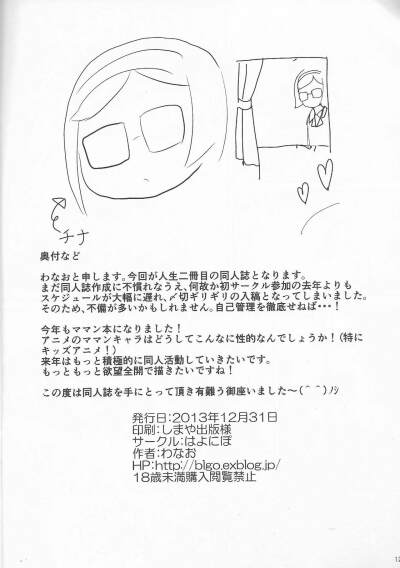 チナ
奥付など
わなおと申します。今回が人生二冊目の同人誌となります。
まだ同人誌作成に不慣れなうえ、何故か初サークル参加の去年よりも
スケジュールが大幅に遅れ、〆切ギリギリの入稿となってしまいました。
そのため、不備が多いかもしれません。自己管理を徹底せねば・・・！
今年もママン本になりました！
アニメのママンキャラはどうしてこんなに性的なんでしょうか！(特に
キッズアニメ！)
来年はもっと積極的に同人活動していきたいです。
もっともっと欲望全開で描きたいですね！
この度は同人誌を手にとって頂き有難う御座いました～(＾＾)ノシ
発行日：2013年12月31日
印刷：しまや出版様
サークル：はよにぽ
作者：わなお
HP:http://blgo.exblog.jp/
18歳未満購入閲覧禁止